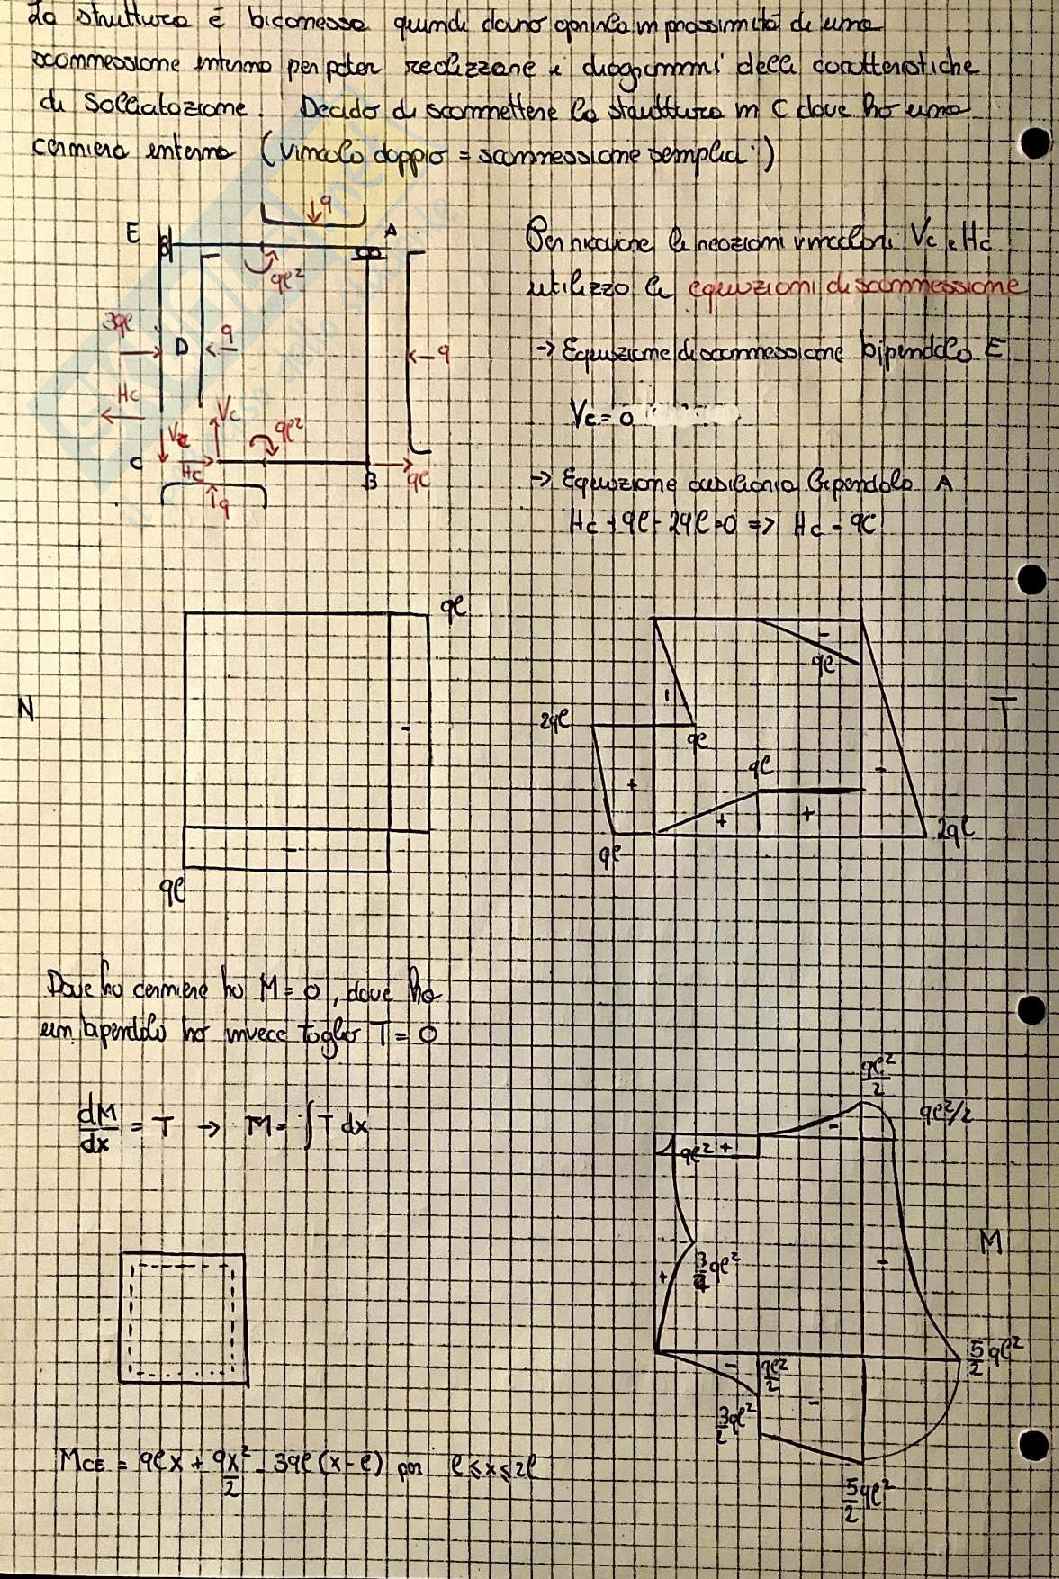 La struttura è biconnessa quindi devo aprirla in prossimità di una
sconnessione interna per poter realizzare i diagrammi delle caratteristiche
di sollecitazione. Decido di sconnettere la struttura in C dove ho una
cerniera interna (vincolo doppio = sconnessione semplice!)
q
E
A
Per ricavare le reazioni vincolari Vc e Hc
qℓ²
utilizzo le equazioni di sconnessione
3qℓ
D
q
q
→ Equazione di sconnessione bipendolo E
Hc
Vc
Vc = 0
Vc
qℓ²
C
Hc
B
qℓ
→ Equazione ausiliaria bipendolo A
q
Hc + qℓ - 2qℓ = 0 => Hc = qℓ
qℓ
-
qℓ
N
-
2qℓ
qℓ
T
qℓ
+
-
+
+
-
qℓ
2qℓ
qℓ
Dove ho cerniere ho M = 0, dove ho
un bipendolo ho invece taglio T = 0
qℓ²/2
qℓ²/2
dM/dx = T → M = ∫T dx
-
qℓ² +
M
+
3/4 qℓ²
-
5/2 qℓ²
-
qℓ²/2
3/2 qℓ²
-
M_CE = qℓx + qx²/2 - 3qℓ(x-ℓ) per ℓ≤x≤2ℓ
5/2 qℓ²